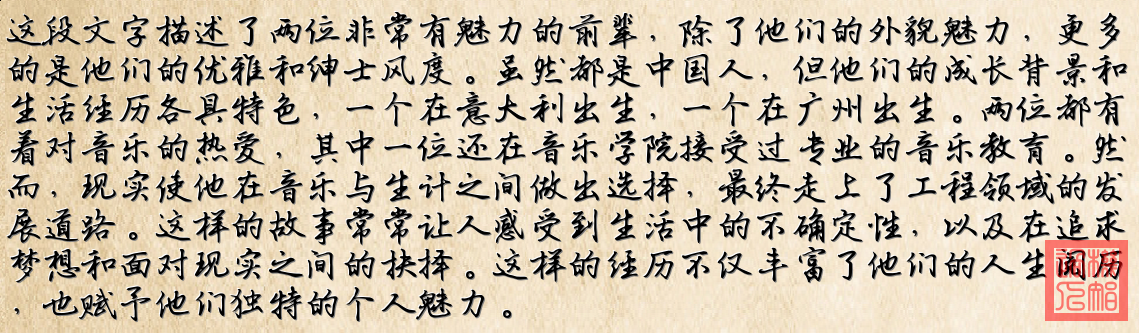 这段文字描述了两位非常有魅力的前辈，除了他们的外貌魅力，更多
的是他们的优雅和绅士风度。虽然都是中国人，但他们的成长背景和
生活经历各具特色，一个在意大利出生，一个在广州出生。两位都有
着对音乐的热爱，其中一位还在音乐学院接受过专业的音乐教育。然
而，现实使他在音乐与生计之间做出选择，最终走上了工程领域的发
展道路。这样的故事常常让人感受到生活中的不确定性，以及在追求
梦想和面对现实之间的抉择。这样的经历不仅丰富了他们的人生阅历
，也赋予他们独特的个人魅力。